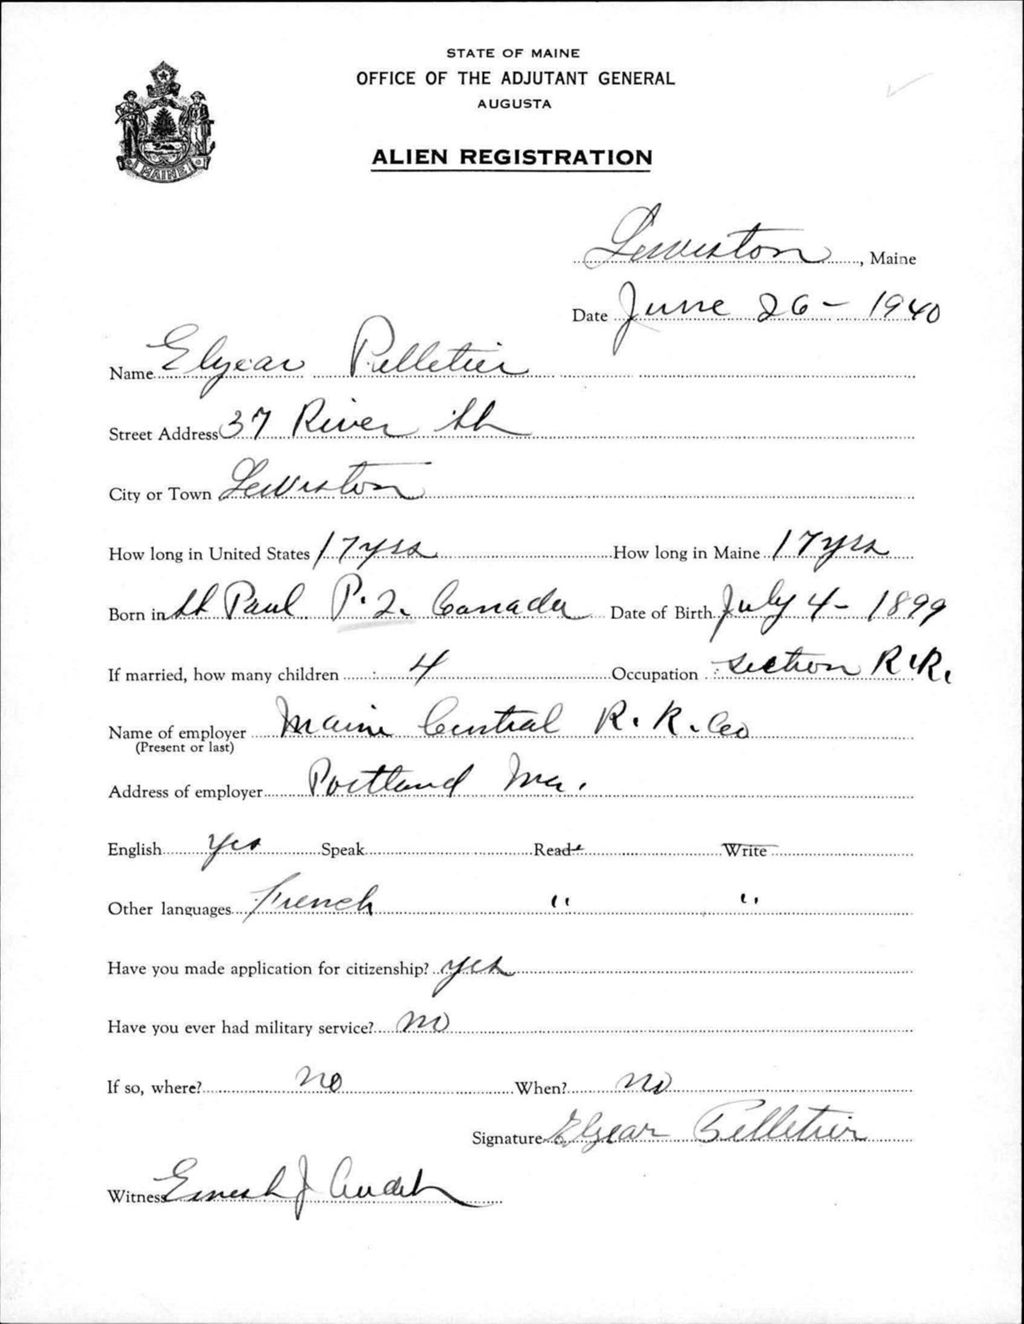 STATE OF MAINE
OFFICE OF THE ADJUTANT GENERAL
AUGUSTA
ALIEN REGISTRATION
MAINE
Lewiston, Maine
Date June 26 - 1940
Name Elyear Pelletier
Street Address 37 River St
City or Town Lewiston
How long in United States 17 yrs How long in Maine 17 yrs
Born in St Paul P. Q. Canada Date of Birth July 4 - 1899
If married, how many children 4 Occupation section R.R.
Name of employer Maine Central R. R. Co
(Present or last)
Address of employer Portland Me.
English Yes Speak Read Write
Other languages French " "
Have you made application for citizenship? yes
Have you ever had military service? no
If so, where? no When? no
Signature Elyear Pelletier
Witness Ernest J